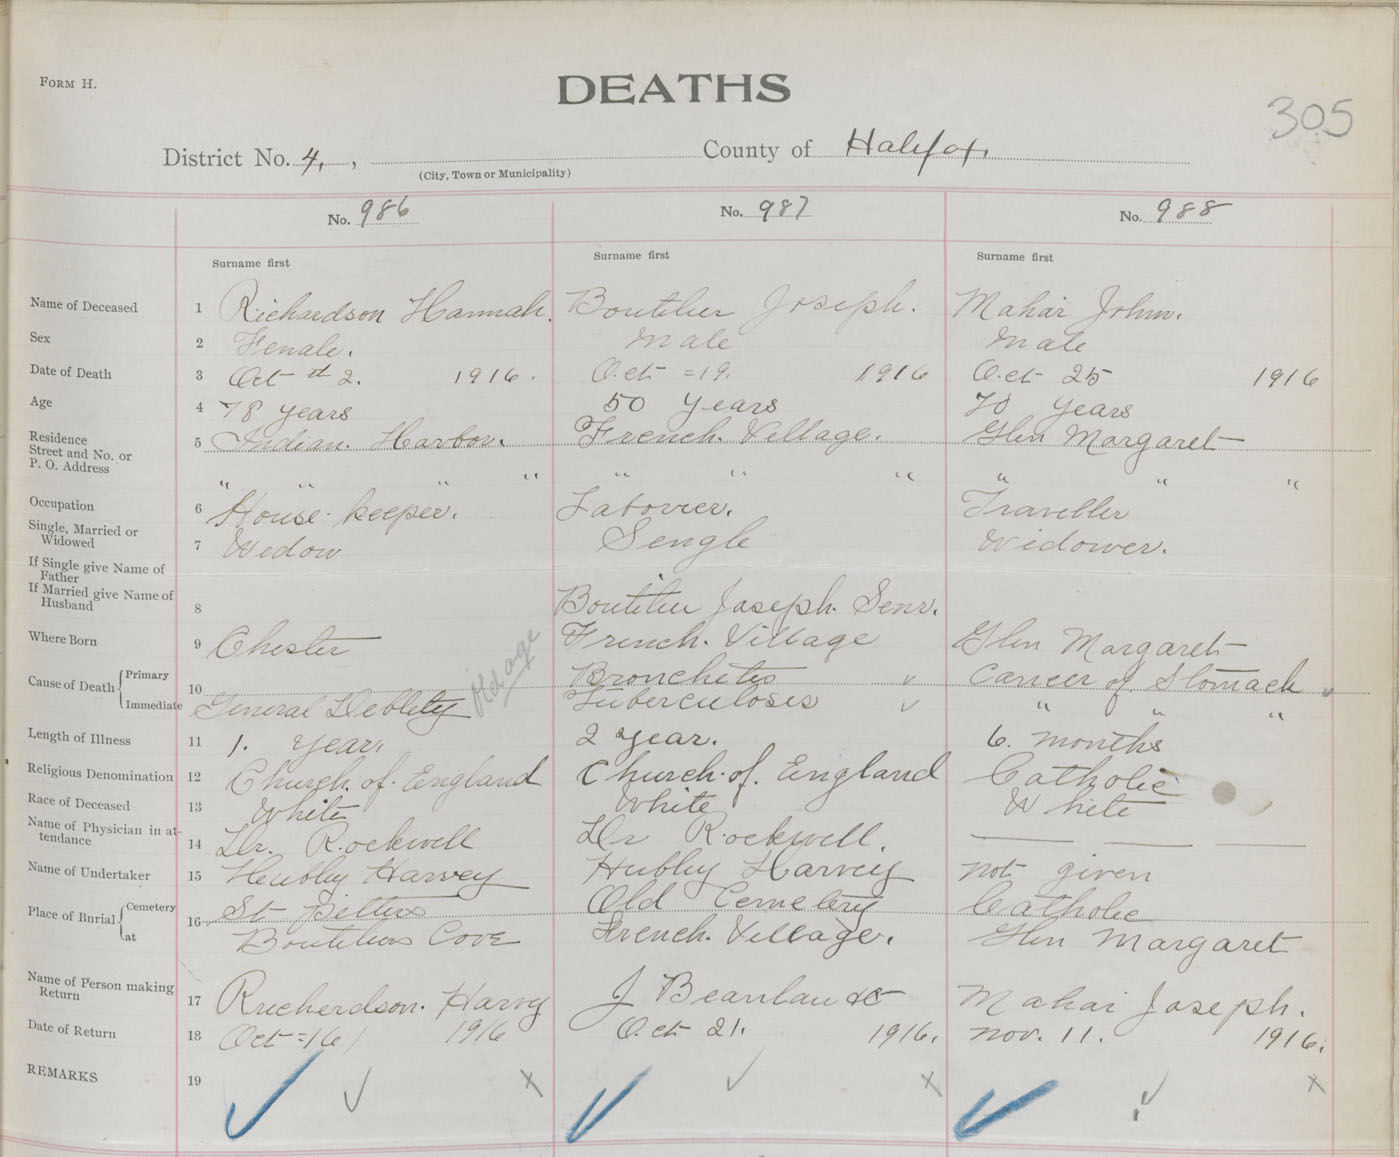 FORM H.
DEATHS
305
District No. 4, , County of Halifax,
(City, Town or Municipality)
No. 986 No. 987 No. 988
Surname first Surname first Surname first
Name of Deceased 1 Richardson Hannah. Boutilier Joseph. Mahar John.
Sex 2 Female. Male Male
Date of Death 3 Oct 2. 1916. Oct =19. 1916 Oct 25 1916
Age 4 78 years 50 years 70 years
Residence 5 Indian. Harbor. French. Village. Glen Margaret
Street and No. or
P. O. Address " " " " " " " " " "
Occupation 6 House keeper. Laborer. Traveller
Single, Married or
Widowed 7 Widow Single Widower.
If Single give Name of
Father
If Married give Name of
Husband 8 Boutilier Joseph. Senr.
Where Born 9 Chester French. Village Glen Margaret
old age
Cause of Death { Primary 10 Bronchetis Cancer of Stomach
Immediate General Deblety Tuberculosis " " "
Length of Illness 11 1. year. 2 year. 6. months
Religious Denomination 12 Church. of. England Church. of. England Catholic
Race of Deceased 13 White White White
Name of Physician in at-
tendance 14 Dr. Rockwell Dr Rockwell. — — —
Name of Undertaker 15 Hubley Harvey Hubley Harvey not given
Place of Burial { Cemetery 16 St Old Cemetery Catholic
at Boutiliers Cove French. Village. Glen Margaret
Name of Person making
Return 17 Richerdson. Harvy J Mahar Joseph.
Date of Return 18 Oct =16 1916 Oct 21. 1916. Nov. 11. 1916.
REMARKS 19 ✓ ✓ x ✓ ✓ x ✓ ✓ x